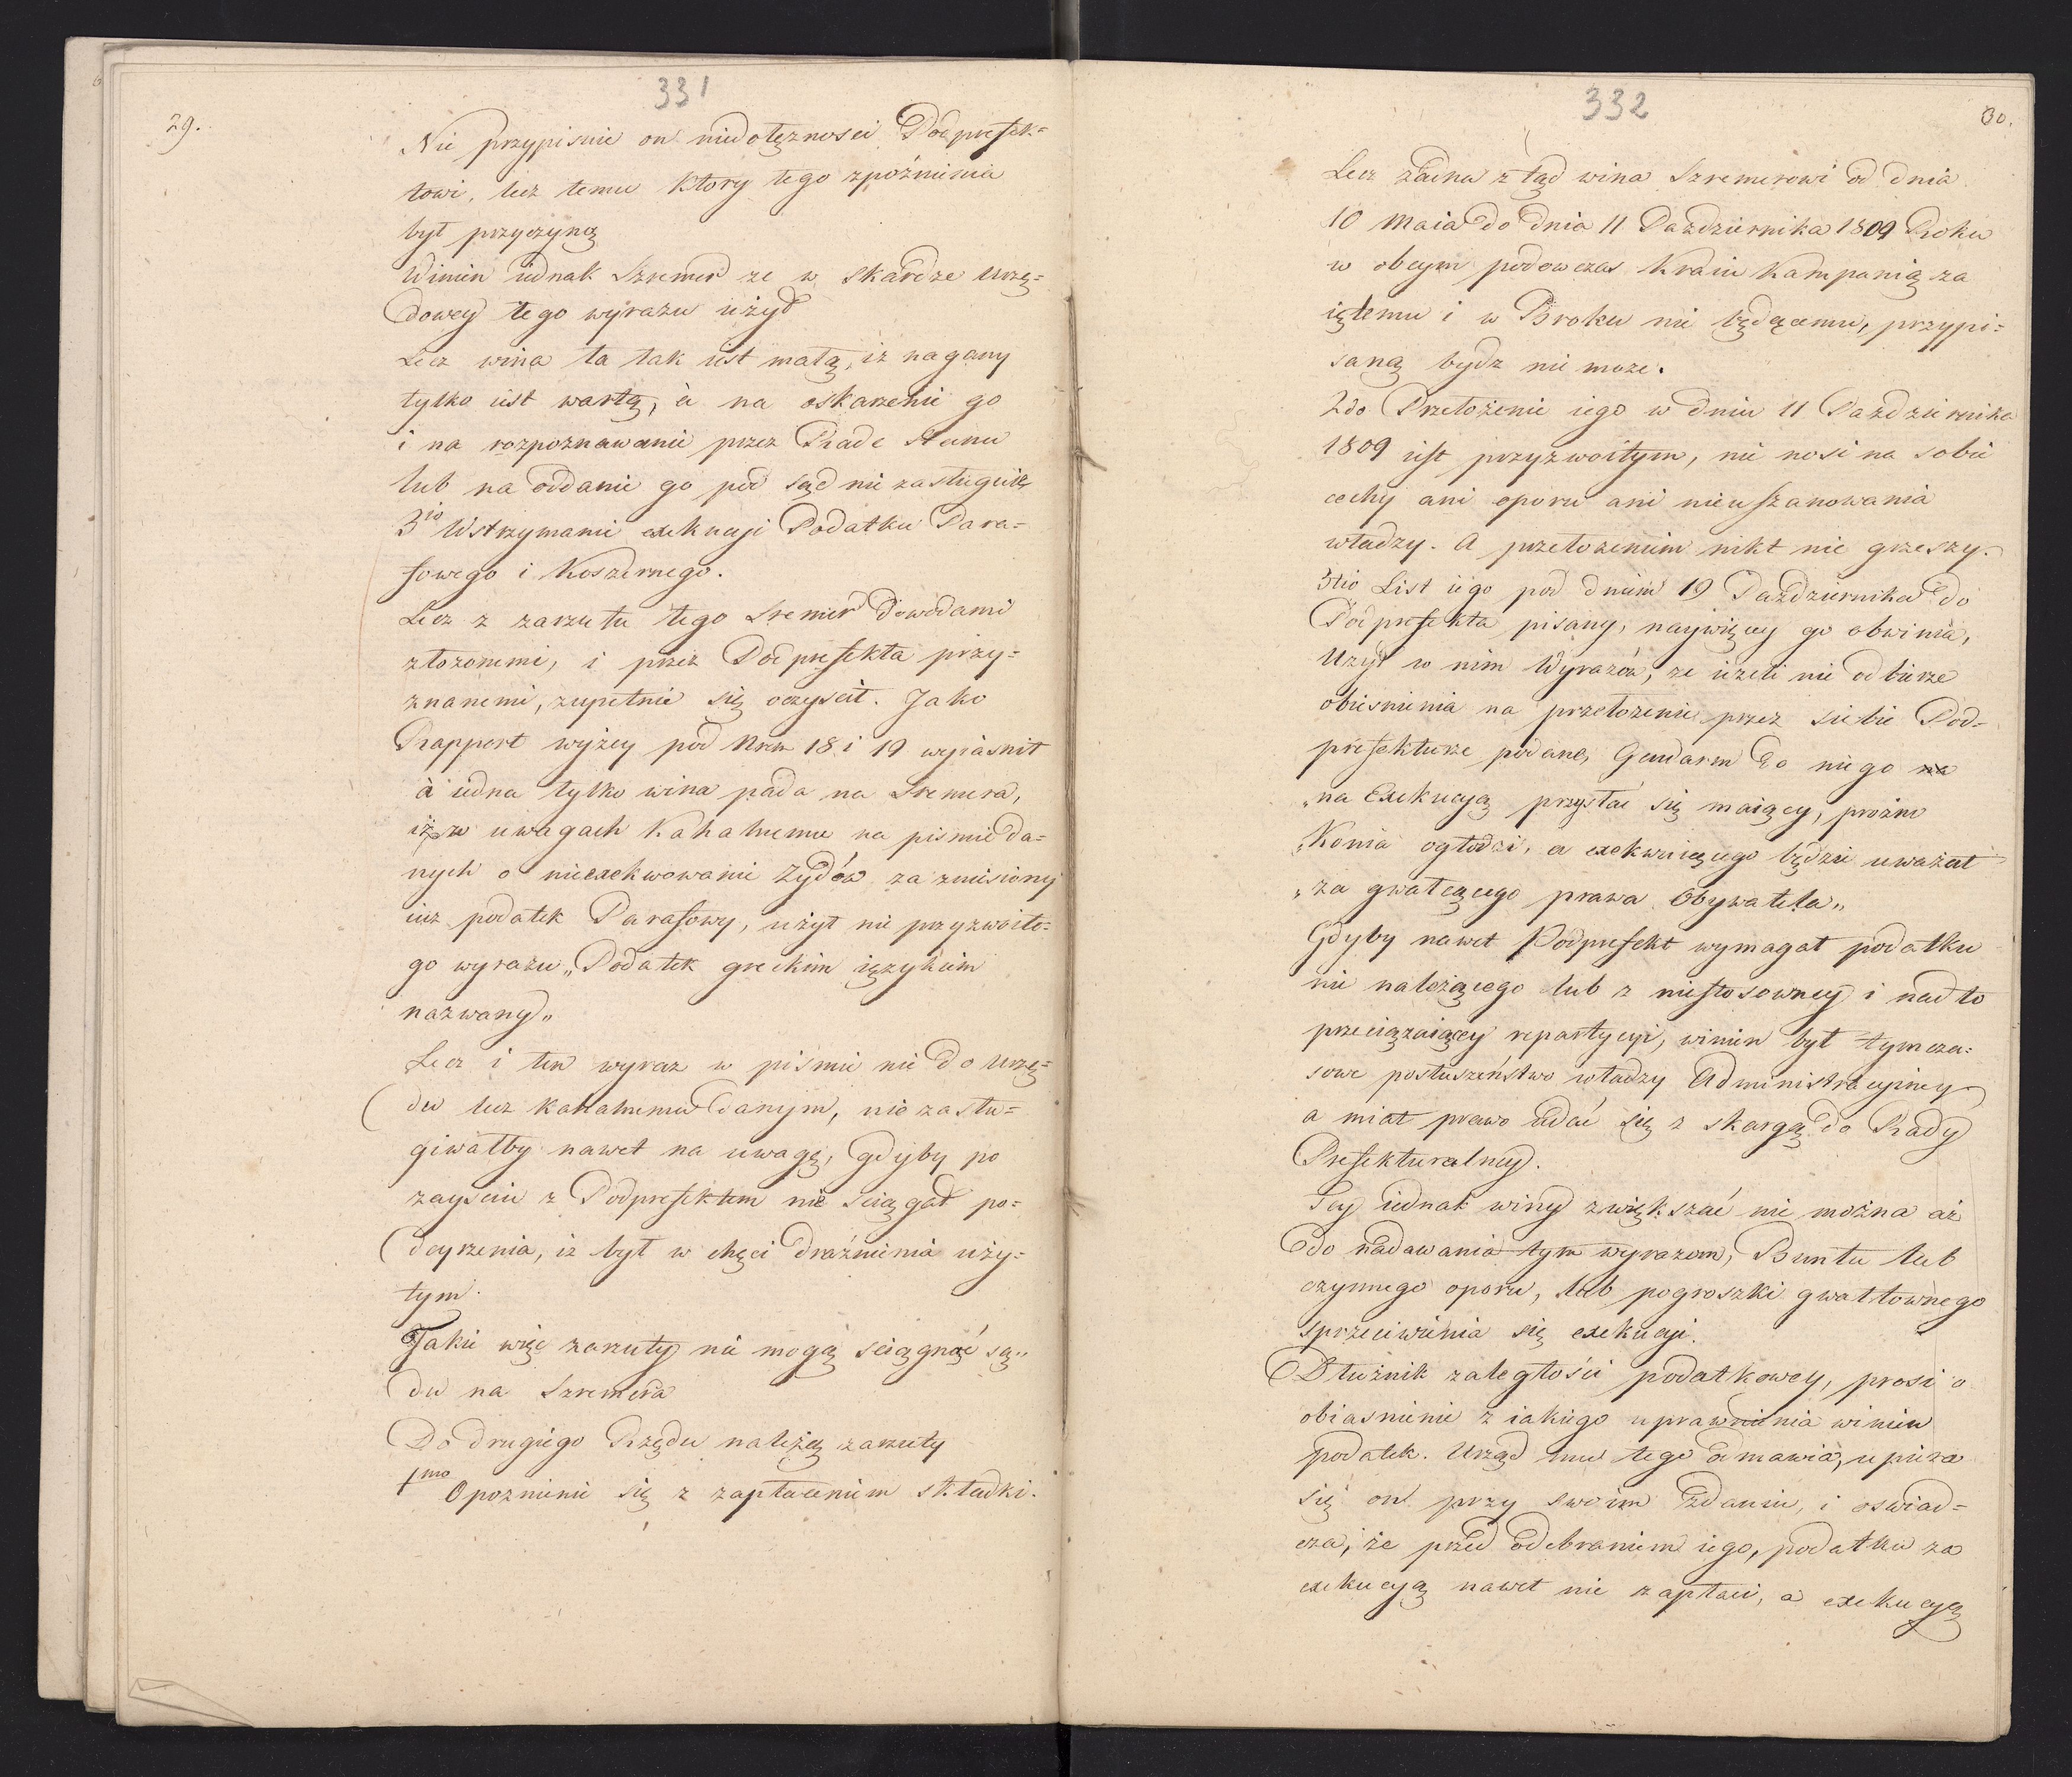 331
29.
Nie przypisuie on niedołężności Podprefek=
towi, lecz temu ktory tego zpóźnienia
był przyczyną
Winien iednak Szremer ze w skardze urzę=
dowey tego wyrazu użył
Lecz wina ta tak iest małą, iż nagany
tylko iest wartą, à na oskarzenie go
i na rozpoznawanie przez Radę Stanu
lub na oddanie go pod sąd nie zasługuie
3io Wstrzymanie exekucji Podatku Para=
fowego i Koszernego.
Lecz z zarzutu tego Sremer dowodami
złozonemi, i przez Podprefekta przy=
znanemi, zupełnie się oczyscił. Jako
Rapport wyżey pod Nrem 18 i 19 wyiaśnił
à iedna tylko wina pada na Sremera,
iż w uwagach Kahalnemu na pismie da=
nych o nieexekwowanie Żydów za zniesiony
iuz podatek Parafowy, użył nie przyzwoite=
go wyrazu „Podatek greckim ięzykiem
nazwany„
Lecz i ten wyraz w piśmie nie do urzę=
du lecz kahalnemu danym, nie zasłu=
giwałby nawet na uwagę, gdyby po
zayściu z Podprefektem nie sciągał po=
deyrzenia, iż był w chęci draźnienia uży=
tym.
Takie więc zarzuty nie mogą sciągnąć są„
du na Szremera
Do drugiego Rzędu należą zarzuty
1mo Opoznienie się z zapłaceniem składki.
332
30.
Lecz żadna z tąd wina Szremerowi od dnia
10 Maia do dnia 11 Pazdziernika 1809 Roku
w obcym podowczas Kraiu Kampanią za
iętemu i w Broku nie będącemu, przypi=
saną bydz nie moze.
2do Przełożenie iego w dniu 11 Pazdziernika
1809 iest przyzwoitym, nie nosi na sobie
cechy ani oporu ani nieuszanowania
władzy. A przełozeniem nikt nie grzeszy.
3tio List iego pod dniem 19 Października do
Podprefekta pisany, naywięcey go obwinia,
Użył w nim Wyrazów, ze iezeli nie odbierze
obiesnienia na przełozenie przez siebie Pod=
prefekturze podane, Gendarm do niego na
„na Exekucyą przysłać się maiący, prożno
„Konia ogłodzi, a exekwuiącego będzie uważał
„za gwałcącego prawa Obywatela„
Gdyby nawet Podprefekt wymagał podatku
nie nalezącego lub z niestosowney i nadto
przeciązaiącey repartycyi, winien był tymcza=
sowe posłuszeństwo władzy Administracyiney
a miał prawo udać się z skargą do Rady
Prefekturalney.
Tey iednak winy zwiększać nie można aż
do nadawania tym wyrazom, Buntu lub
czynnego oporu, lub pogroszki gwałtownego
sprzeciwienia się exekucyi.
Dłużnik zaległości podatkowey, prosi o
obiasnienie z iakiego uprawnienia winien
podatek. Urząd mu tego odmawia, upiera
się on przy swoim żdaniu, i oswiad=
cza, że przed odebraniem iego, podatku za
exekucyą nawet nie zapłaci, a exekucyą